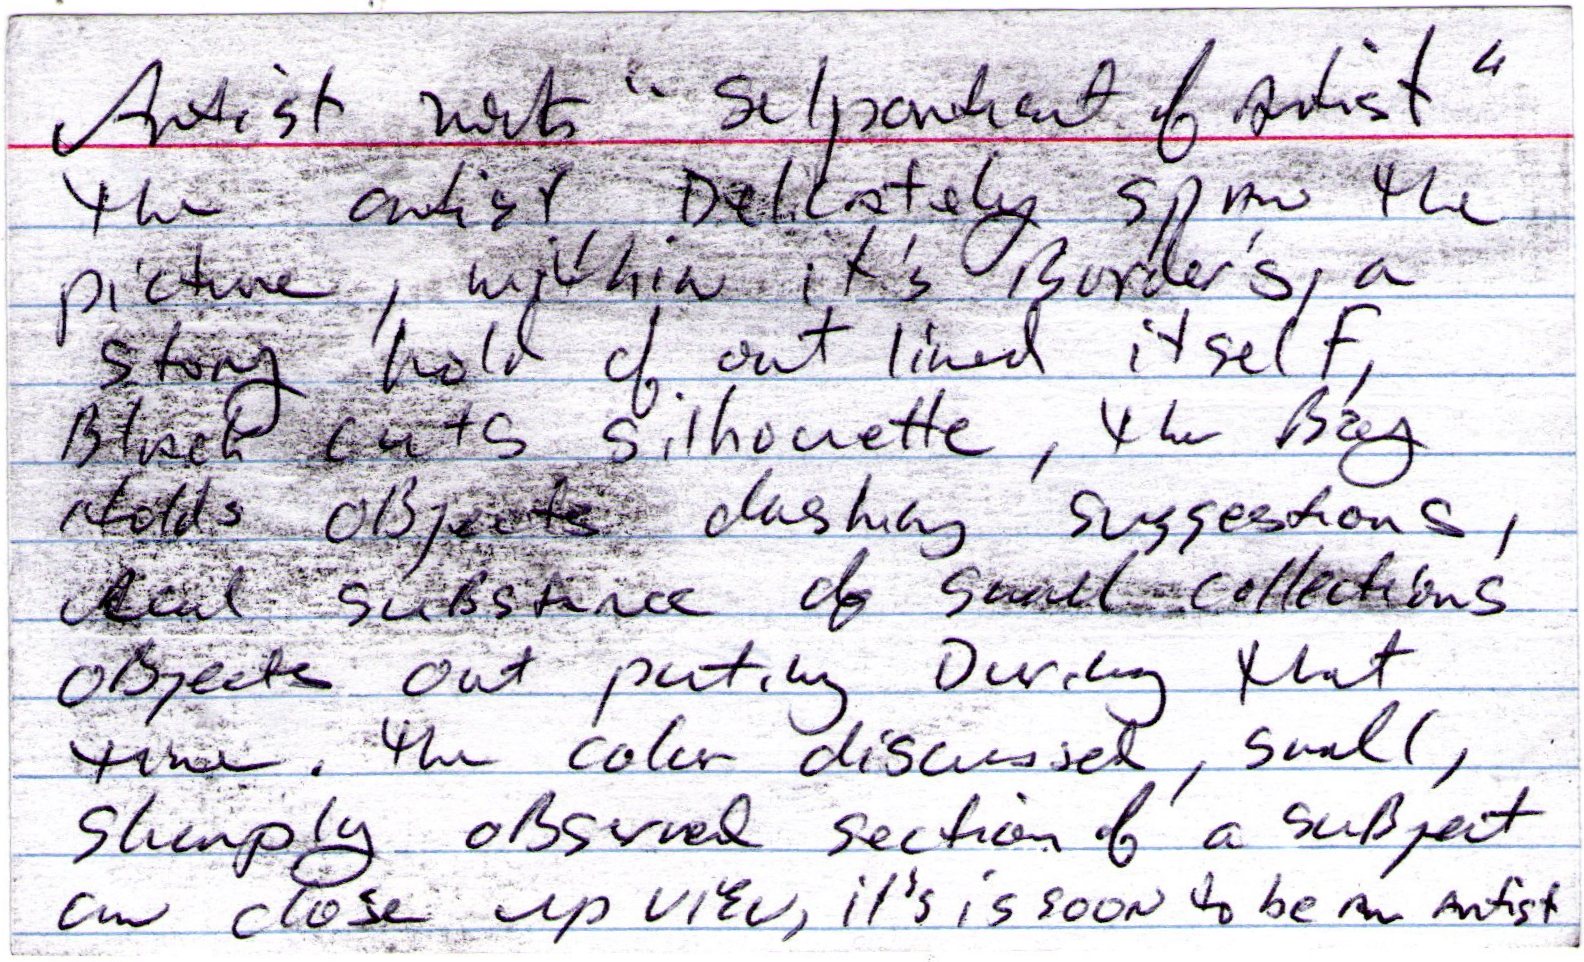 Artist " Selpontrant of Artist "
the artist Delicately the
picture, within it's Border's, a
story hold of out lined itself,
Black cuts silhouette, the Bag
Holds oBjects dashing suggestions,
Real suBstance of small collections
oBjects out puting During that
time. the color discussed, small,
sharply oBserved section of a suBject
an close up view, it's is soon to be an Artist